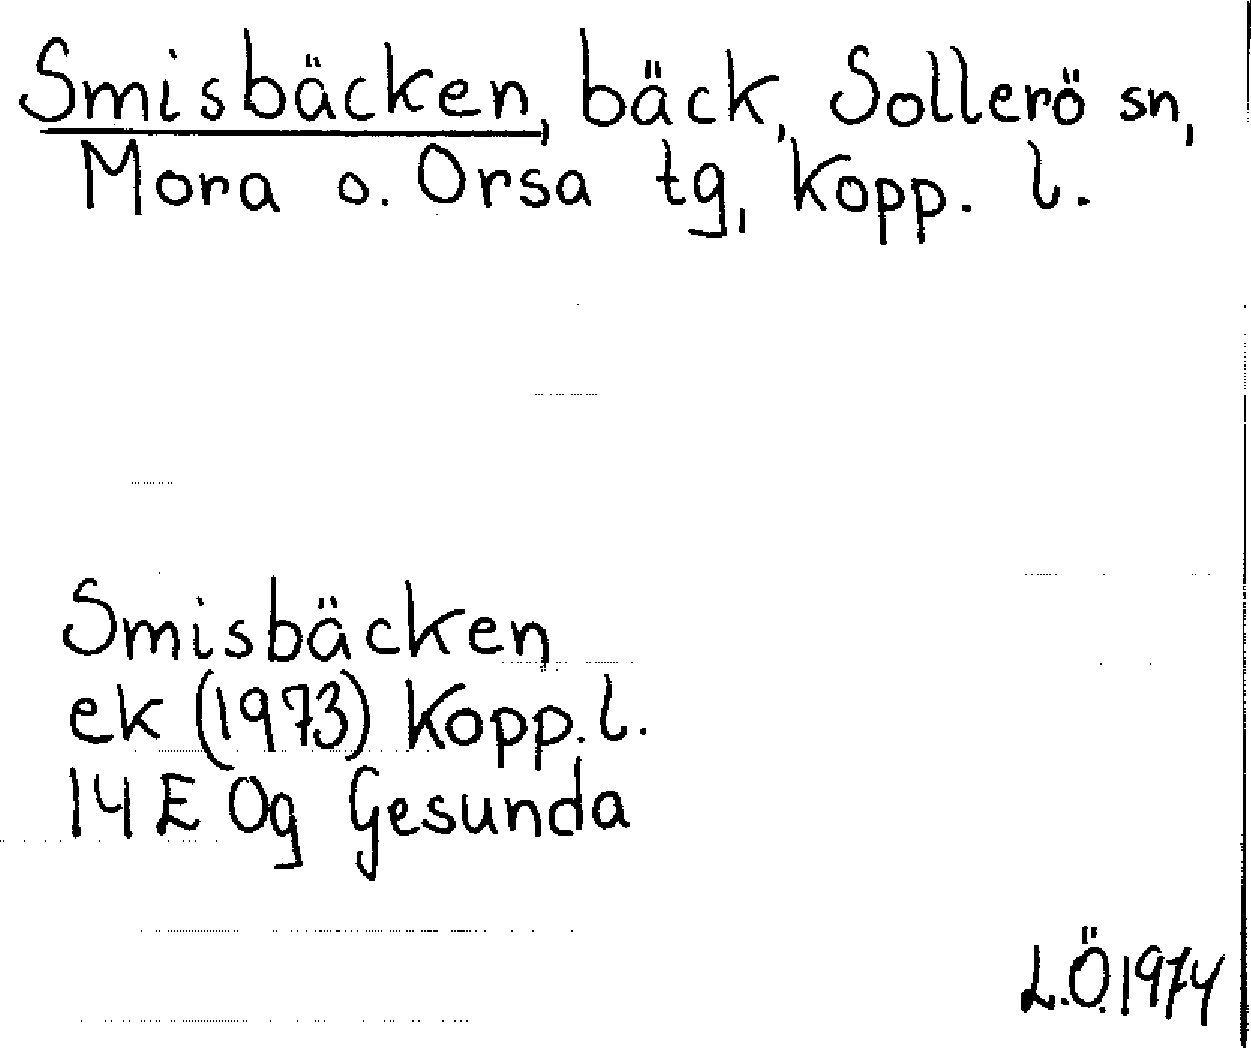 Smisbäcken, bäck, Sollerö sn,
Mora o. Orsa tg, Kopp. l.
Smisbäcken
ek (1973) Kopp. l.
14 E 0g Gesunda
L.Ö. 1974